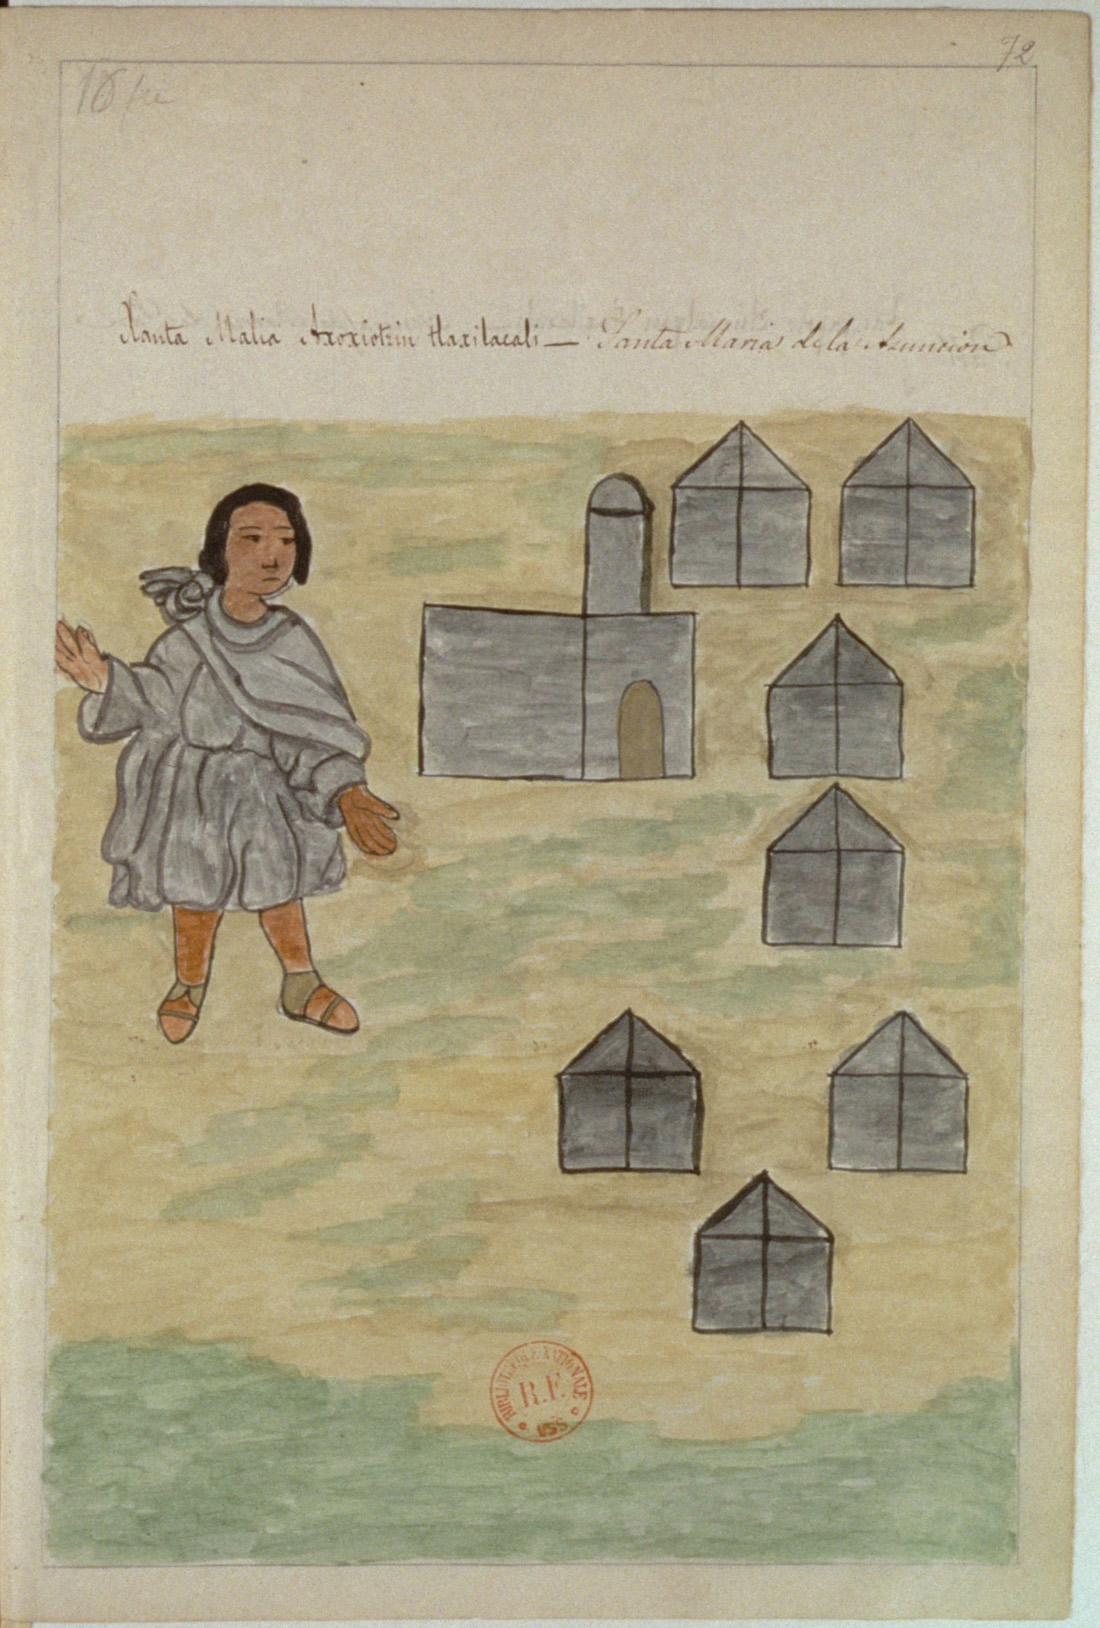 72
16
Xanta Malia Axoxiotzin tlaxilacali — Santa Maria de la Asuncion
BIBLIOTHEQUE NATIONALE
R.F.
MSS